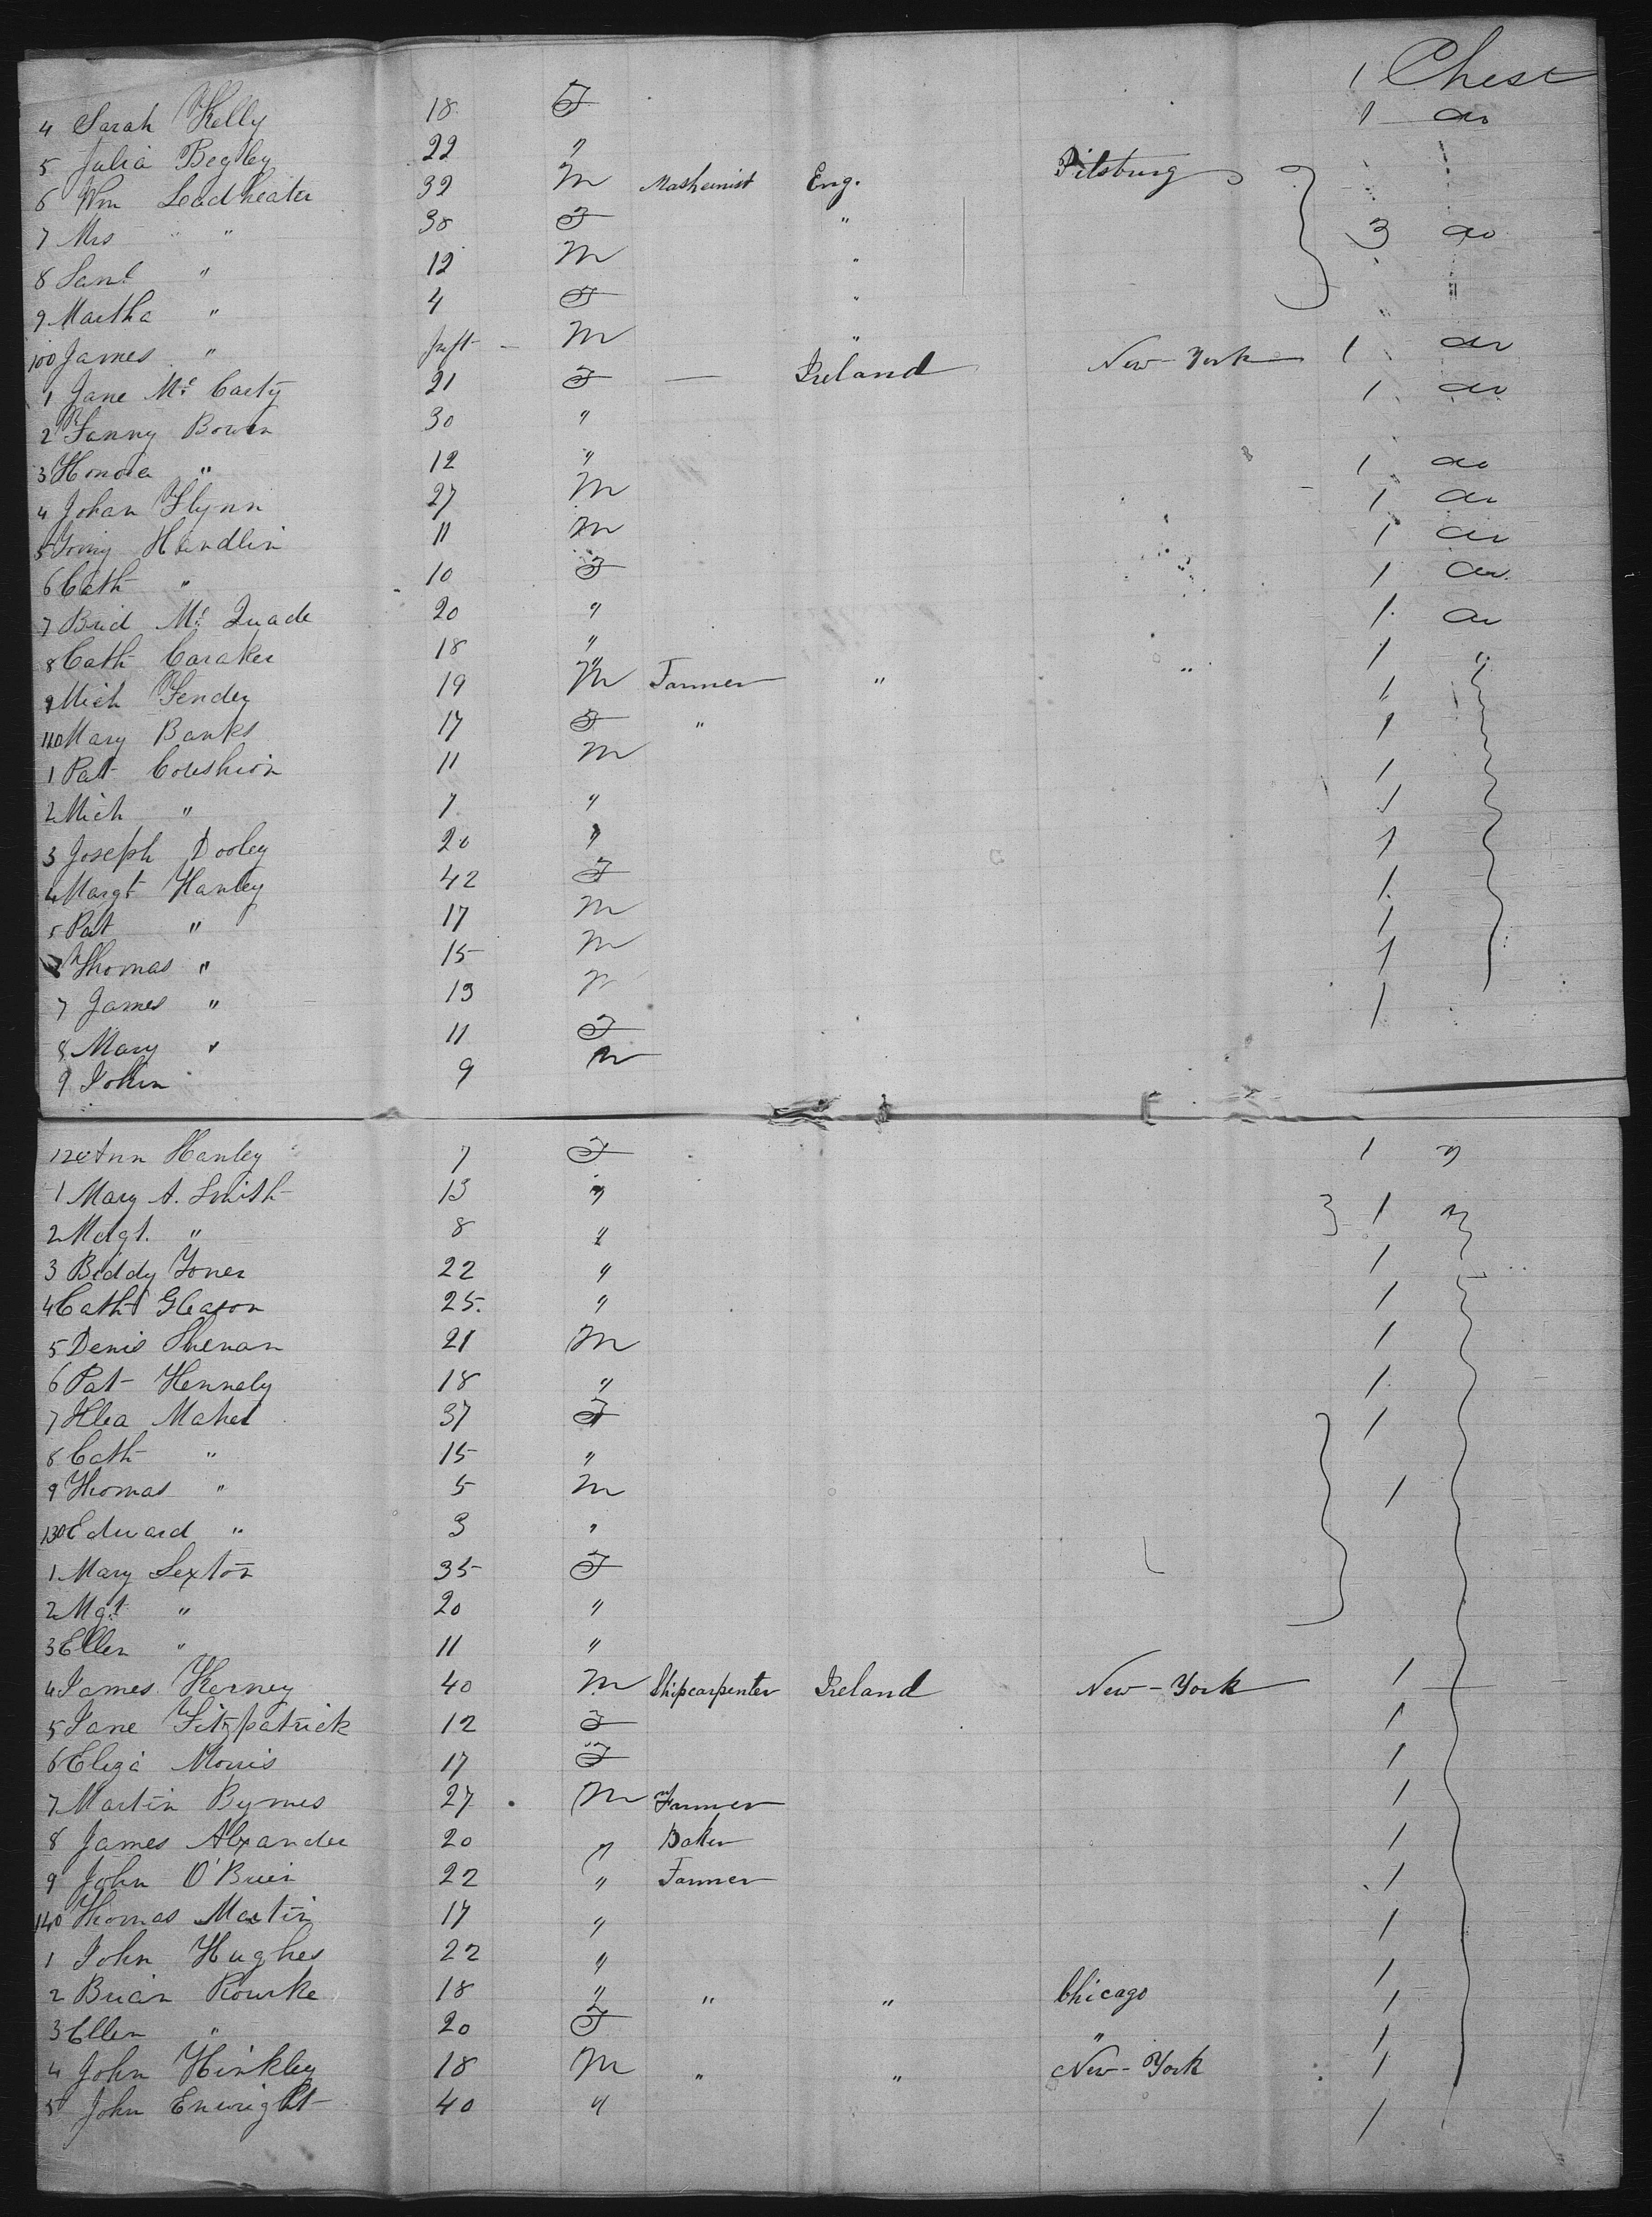 1 Chest
4 Sarah Kelly 18 F 1 do
5 Julia Begley 22 "
6 Wm Leadheater 32 M Masheinist Eng. Pitsburg
7 Mrs " " 38 F " 3 do
8 Saml " 12 M "
9 Martha " 4 F "
100 James " Inft M "
1 Jane Mc Carty 21 F — Ireland New-York 1 do
2 Fanny Bowen 30 " 1 do
3 Honora " 12 "
4 Johan Flynn 27 M 1 do
5 Handlin 11 M 1 do
6 Cath " 10 F 1 do
7 Brid Mc Quade 20 " 1 do
8 Cath Caraker 18 " 1 do
9 Mich Fender 19 M Farmer " " 1 "
110 Mary Banks 17 F " 1
1 Pat Coushion 11 M 1
2 Mich " 7 " 1
3 Joseph Dooley 20 " 1
4 Margt Hanley 42 F 1
5 Pat " 17 M 1
Thomas " 15 M 1
7 James " 13 M 1
8 Mary " 11 F 1
9 John 9 M
120 Ann Hanley 7 F 1 "
1 Mary A. Smith 13 " 1 "
2 Mdgt. " 8 "
3 Biddy Jones 22 " 1
4 Cath Gleason 25. " 1
5 Denis Shenan 21 M 1
6 Pat Hennely 18 " 1
7 Maher 37 F 1
8 Cath " 15 "
9 Thomas " 5 M 1
130 Edward " 3 "
1 Mary Sexton 35 F
2 Mgt " 20 "
3 Ellen " 11 "
4 James Kerney 40 M Shipcarpenter Ireland New-York 1
5 Jane Fitzpatrick 12 F 1
6 Eliza Morris 17 F 1
7 Martin Byrnes 27 M Farmer 1
8 James Alxander 20 " Baker 1
9 John O'Brien 22 " Farmer 1
140 Thomas Martin 17 " 1
1 John Hughes 22 " 1
2 Brian Rourke 18 " " " Chicago 1
3 Ellen " 20 F " 1
4 John Hinkley 18 M " " New-York 1
5 John Enwright 40 " 1